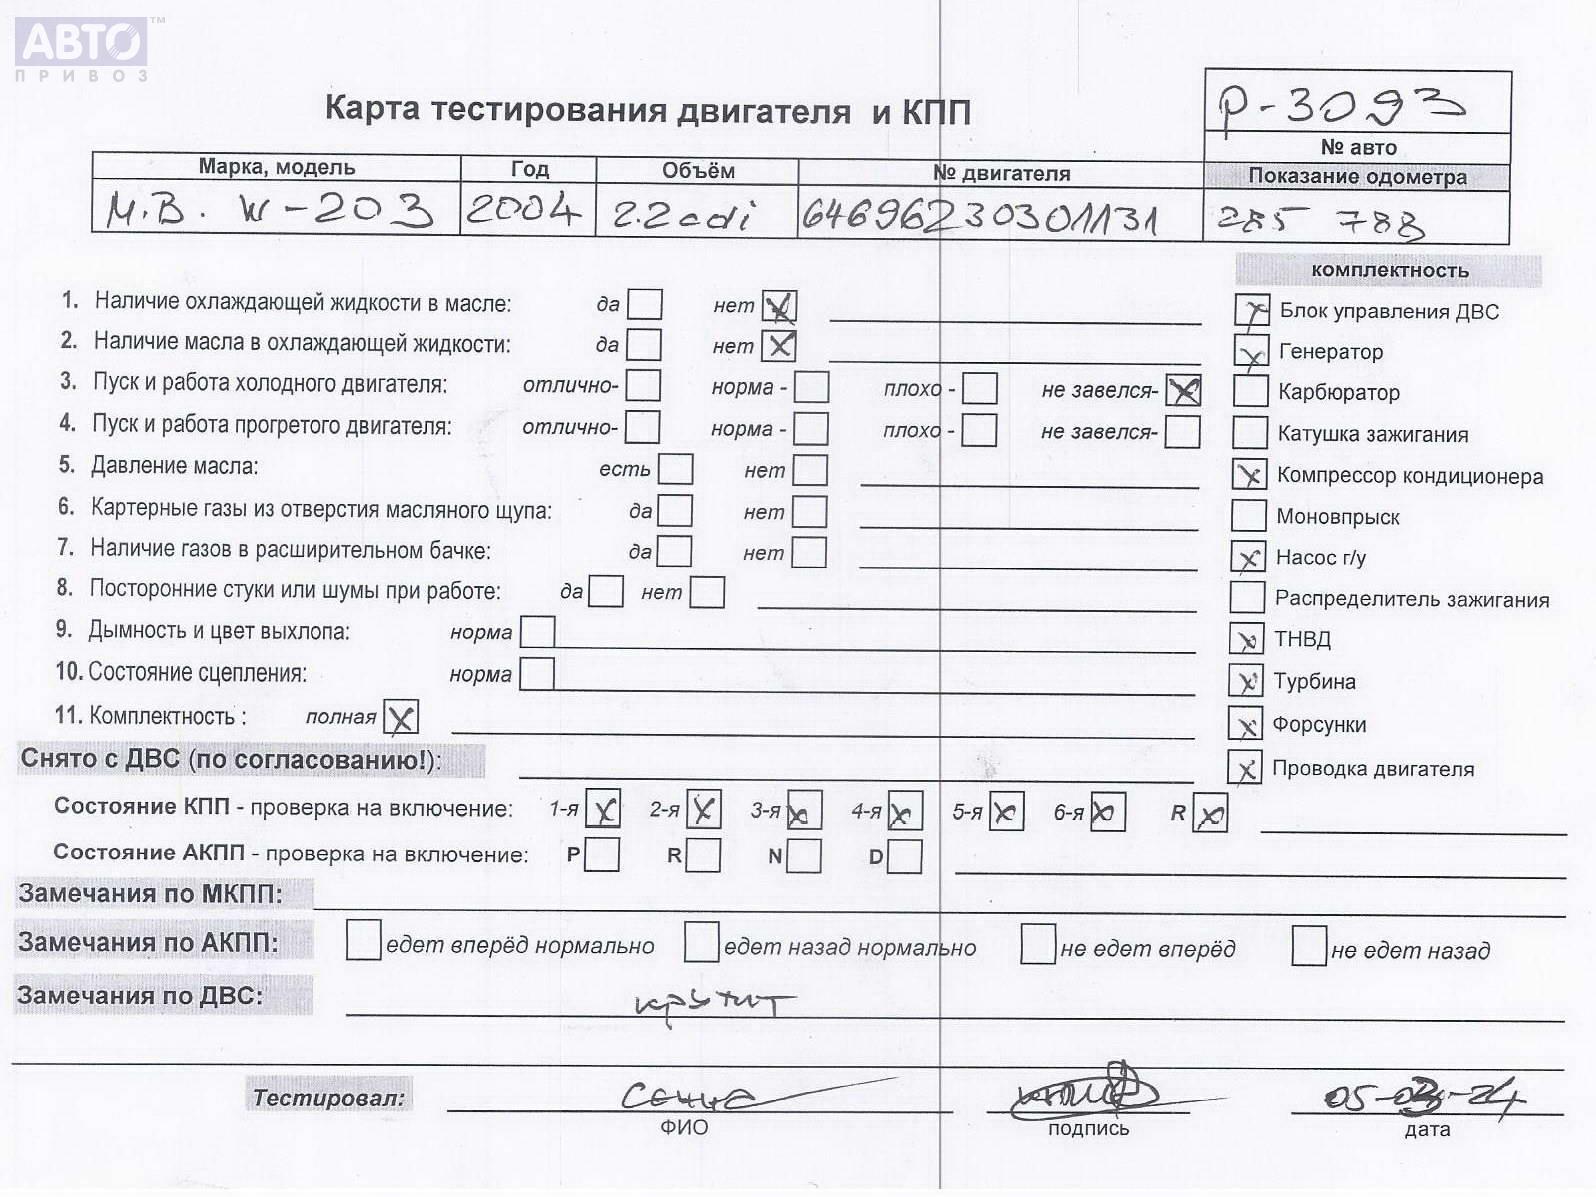 АВТО™
ПРИВОЗ
Карта тестирования двигателя и КПП
Р-3093
№ авто
Марка, модель Год Объём № двигателя Показание одометра
М.В. W-203 2004 2.2cdi 64696230301131 285 788
комплектность
1. Наличие охлаждающей жидкости в масле: да нет
Блок управления ДВС
2. Наличие масла в охлаждающей жидкости: да нет
Генератор
3. Пуск и работа холодного двигателя: отлично- норма - плохо - не завелся-
Карбюратор
4. Пуск и работа прогретого двигателя: отлично- норма - плохо - не завелся-
Катушка зажигания
5. Давление масла: есть нет
Компрессор кондиционера
6. Картерные газы из отверстия масляного щупа: да нет
Моновпрыск
7. Наличие газов в расширительном бачке: да нет
Насос г/у
8. Посторонние стуки или шумы при работе: да нет
Распределитель зажигания
9. Дымность и цвет выхлопа: норма
ТНВД
10. Состояние сцепления: норма
Турбина
11. Комплектность : полная
Форсунки
Снято с ДВС (по согласованию!):
Проводка двигателя
Состояние КПП - проверка на включение: 1-я 2-я 3-я 4-я 5-я 6-я R
Состояние АКПП - проверка на включение: P R N D
Замечания по МКПП:
Замечания по АКПП: едет вперёд нормально едет назад нормально не едет вперёд не едет назад
Замечания по ДВС: крутит
Тестировал: 05-03-24
ФИО подпись дата